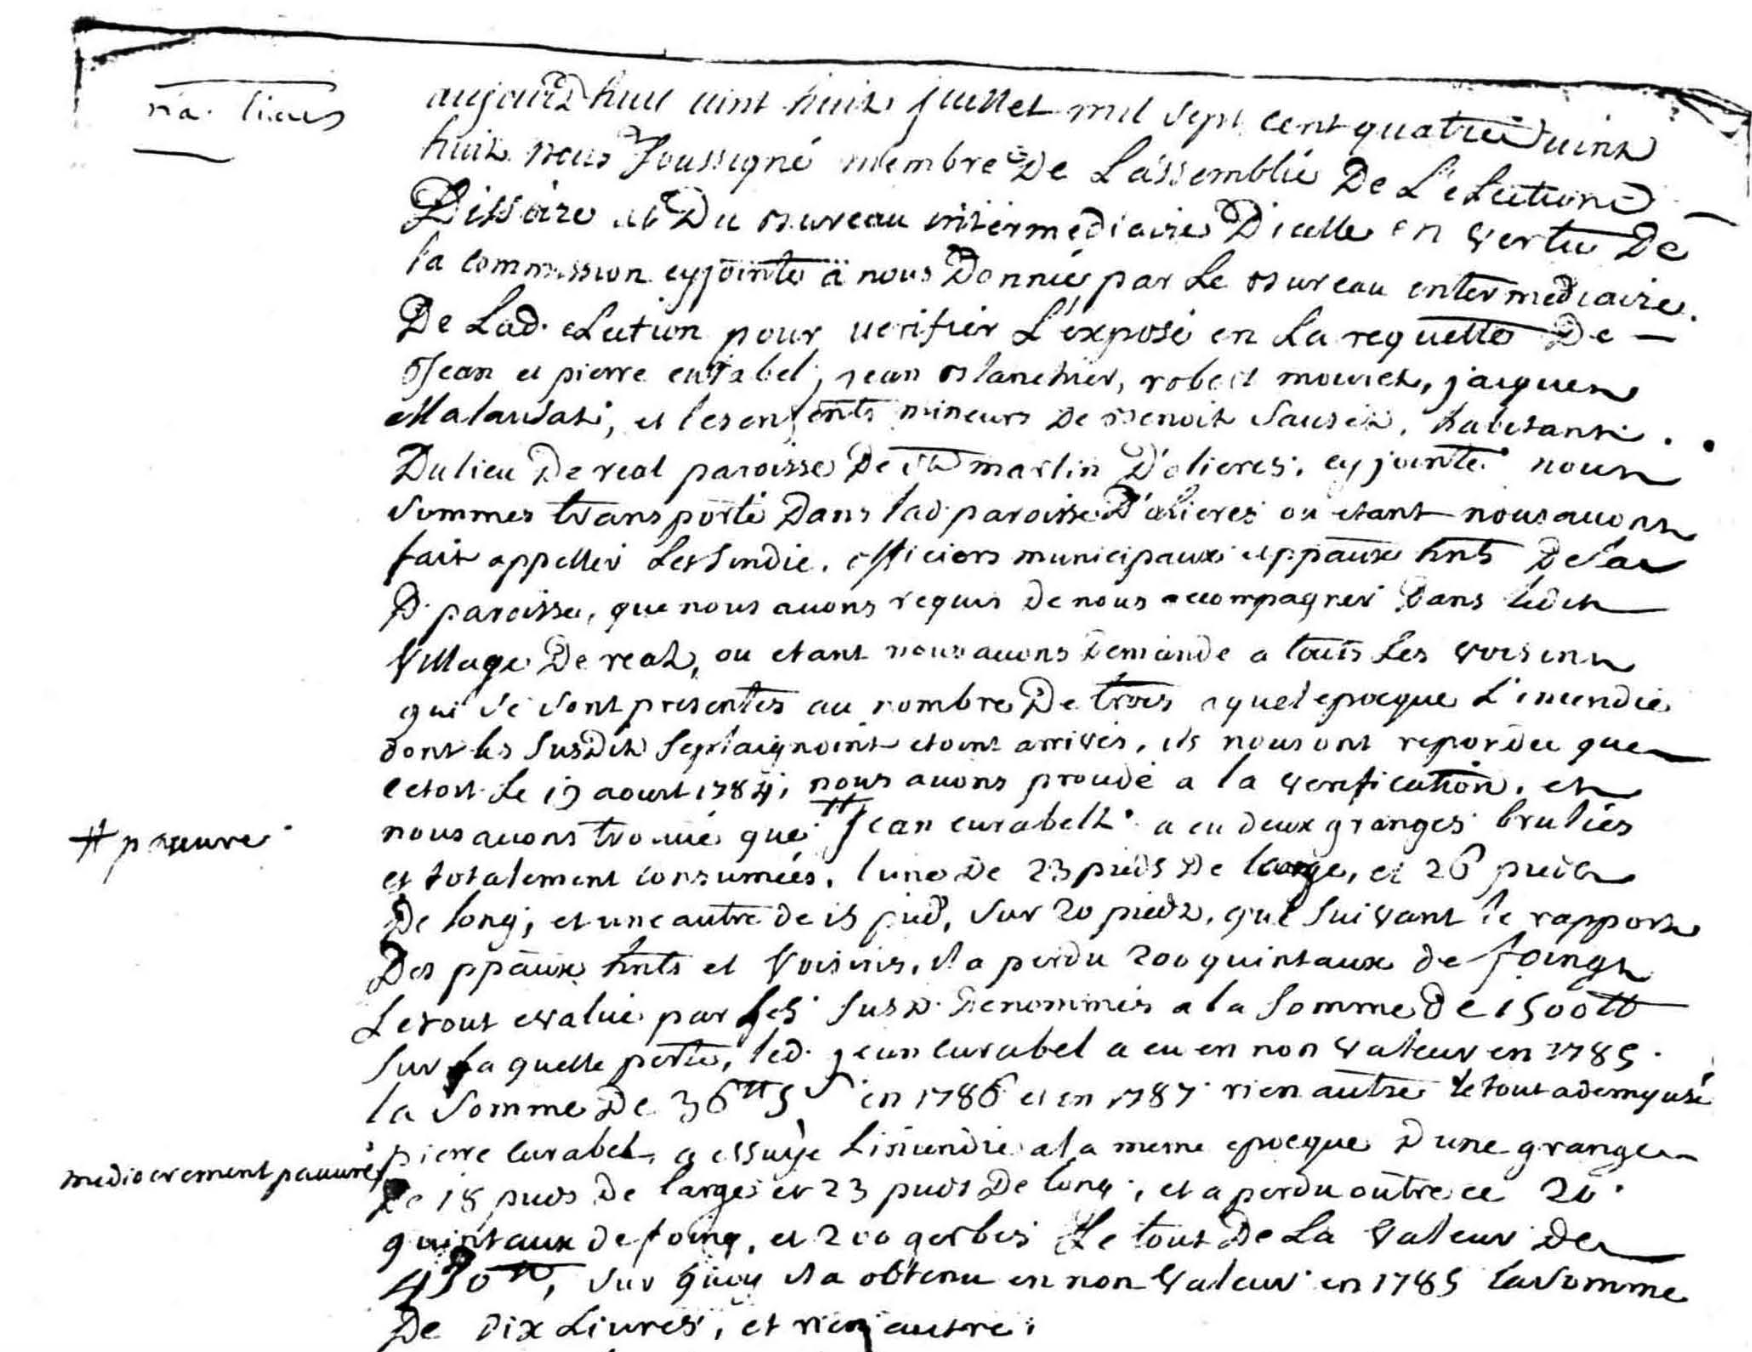 aujourdhuy vint huit juillet mil sept cent quatre vint
huit nous soussigné membre De L'assemblée De L'eslection
D'issoire et Du bureau intermediaire D'icelle en vertu De
la commission cy jointe à nous Donnée par Le bureau intermediaire
De Lad. election pour verifier L'exposé en La requette De
Jean et pierre curabel, jean blanchier, robert mouret, jacques
Malaudat, et les enfents mineurs De Benoit Sauret, habitants
Du lieu De real paroisse De St martin D'olieres, cy jointe nous
sommes transporté Dans lad. paroisse D'olieres ou etant nous avons
fait appeller Le sindic, officiers municipaux et ppaux hnts De la
D. paroisse, que nous avons requis de nous accompagner Dans ledit
village De real, ou etant nous avons Demandé a touts Les voisins
qui se sont presentés au nombre De trois a quel epocque L'incendie
dont les susdits se plaignoint etoint arrivés, ils nous ont repondu que
cetoit Le 19 aoust 1784, nous avons proudé a la verification, et
# pauvre
nous avons trouvé que # Jean curabelt a eu deux granges brulées
et totalement consumées, l'une De 23 pieds De large, et 26 pieds
De long, et une autre de 15 pied, sur 20 pieds, que suivant le rapport
Des ppaux hnts et voisins, il a perdu 200 quintaux de foings
Le tout evalué par les susd. Denommés a la somme De 1500tt
sur laquelle perte, led. jean curabel a eu en non valeur en 1785
la somme De 36tt 5s en 1786 et en 1787 rien autre le tout
mediocrement pauvre
pierre curabel, a essuyé L'incendie a la meme epocque D'une grange
De 18 pieds De large et 23 pieds De long, et a perdu outre ce 20
quintaux de foing, et 200 gerbes Le tout De La valeur De
430tt, sur quoy il a obtenu en non valeur en 1785 la somme
De Dix Livres, et rien autre.